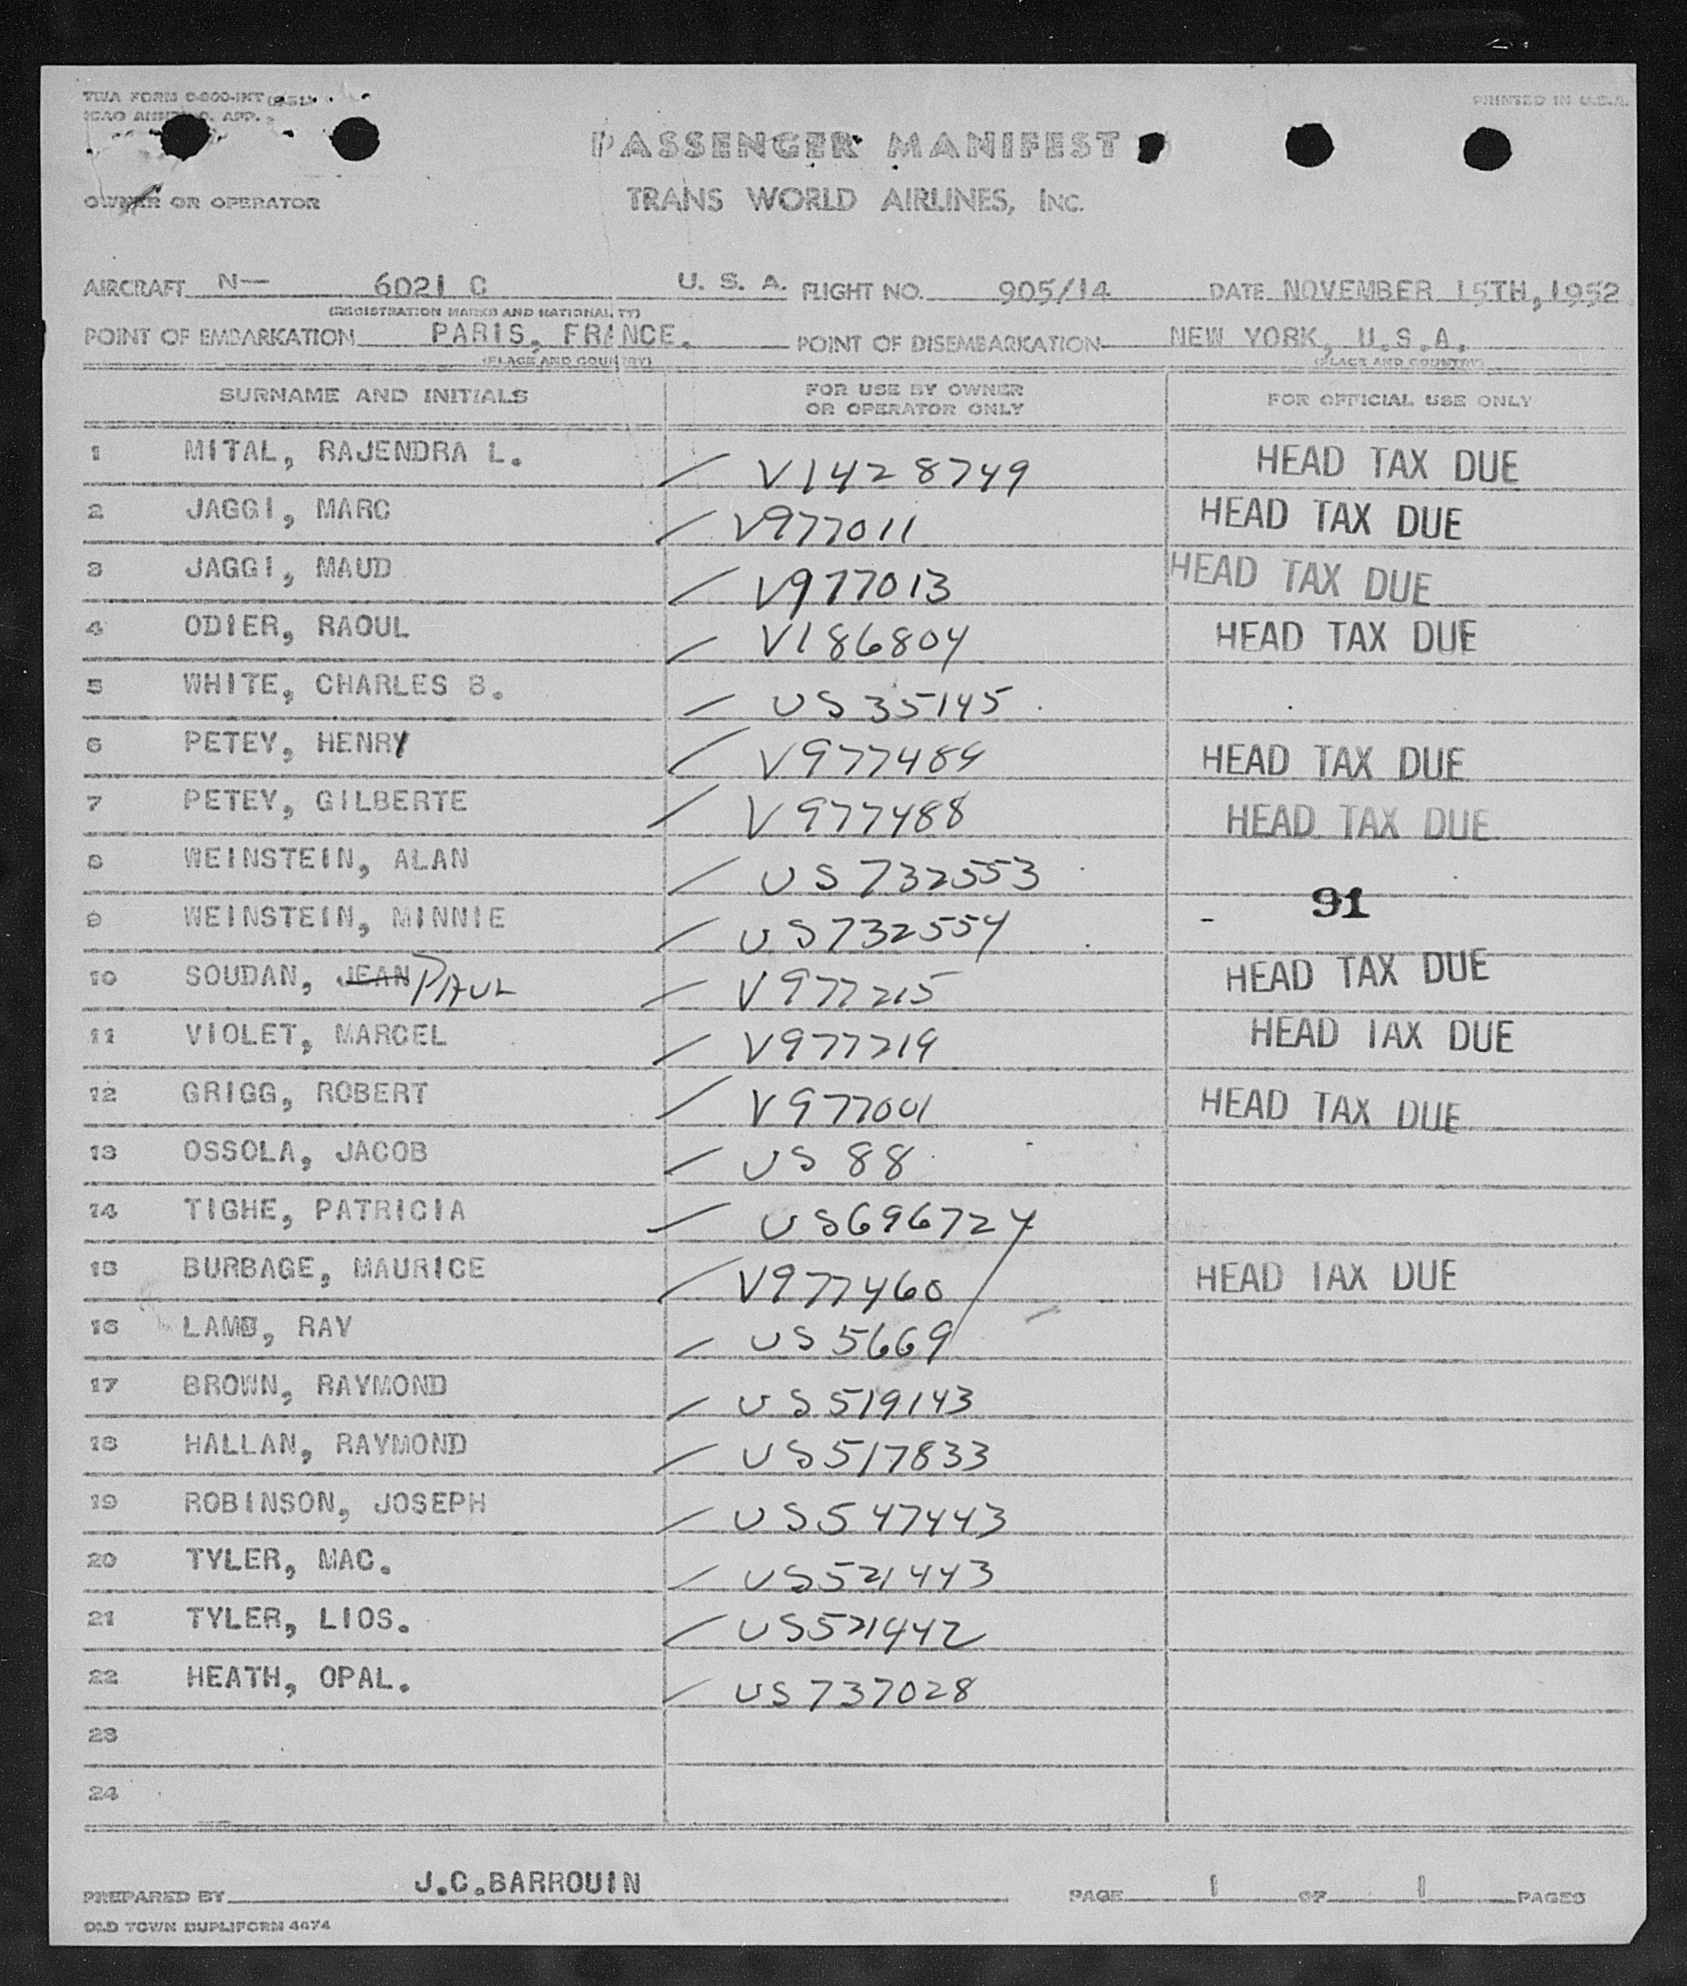 TWA FORM
PRINTED IN U.S.A.
PASSENGER MANIFEST
TRANS WORLD AIRLINES, INC.
OWNER OR OPERATOR
AIRCRAFT N— 6021 C U. S. A. FLIGHT NO. 905/14 DATE NOVEMBER 15TH, 1952
(REGISTRATION MARKS AND NATIONALITY)
POINT OF EMBARKATION PARIS, FRANCE. POINT OF DISEMBARKATION NEW YORK, U.S.A.
(PLACE AND COUNTRY) (PLACE AND COUNTRY)
SURNAME AND INITIALS FOR USE BY OWNER OR OPERATOR ONLY FOR OFFICIAL USE ONLY
1 MITAL, RAJENDRA L. V1428749 HEAD TAX DUE
2 JAGGI, MARC V977011 HEAD TAX DUE
3 JAGGI, MAUD V977013 HEAD TAX DUE
4 ODIER, RAOUL V186804 HEAD TAX DUE
5 WHITE, CHARLES B. US35145
6 PETEY, HENRY V977489 HEAD TAX DUE
7 PETEY, GILBERTE V977488 HEAD TAX DUE
8 WEINSTEIN, ALAN US732553
91
9 WEINSTEIN, MINNIE US732554
10 SOUDAN, JEAN PAUL V977215 HEAD TAX DUE
11 VIOLET, MARCEL V977219 HEAD TAX DUE
12 GRIGG, ROBERT V977001 HEAD TAX DUE
13 OSSOLA, JACOB US 88
14 TIGHE, PATRICIA US696724
15 BURBAGE, MAURICE V977460 HEAD TAX DUE
16 LAMB, RAY US5669
17 BROWN, RAYMOND US519143
18 HALLAN, RAYMOND US517833
19 ROBINSON, JOSEPH US547443
20 TYLER, MAC. US521443
21 TYLER, LIOS. US521442
22 HEATH, OPAL. US737028
23
24
PREPARED BY J.C.BARROUIN PAGE 1 OF 1 PAGES
OLD TOWN DUPLIFORM 4474